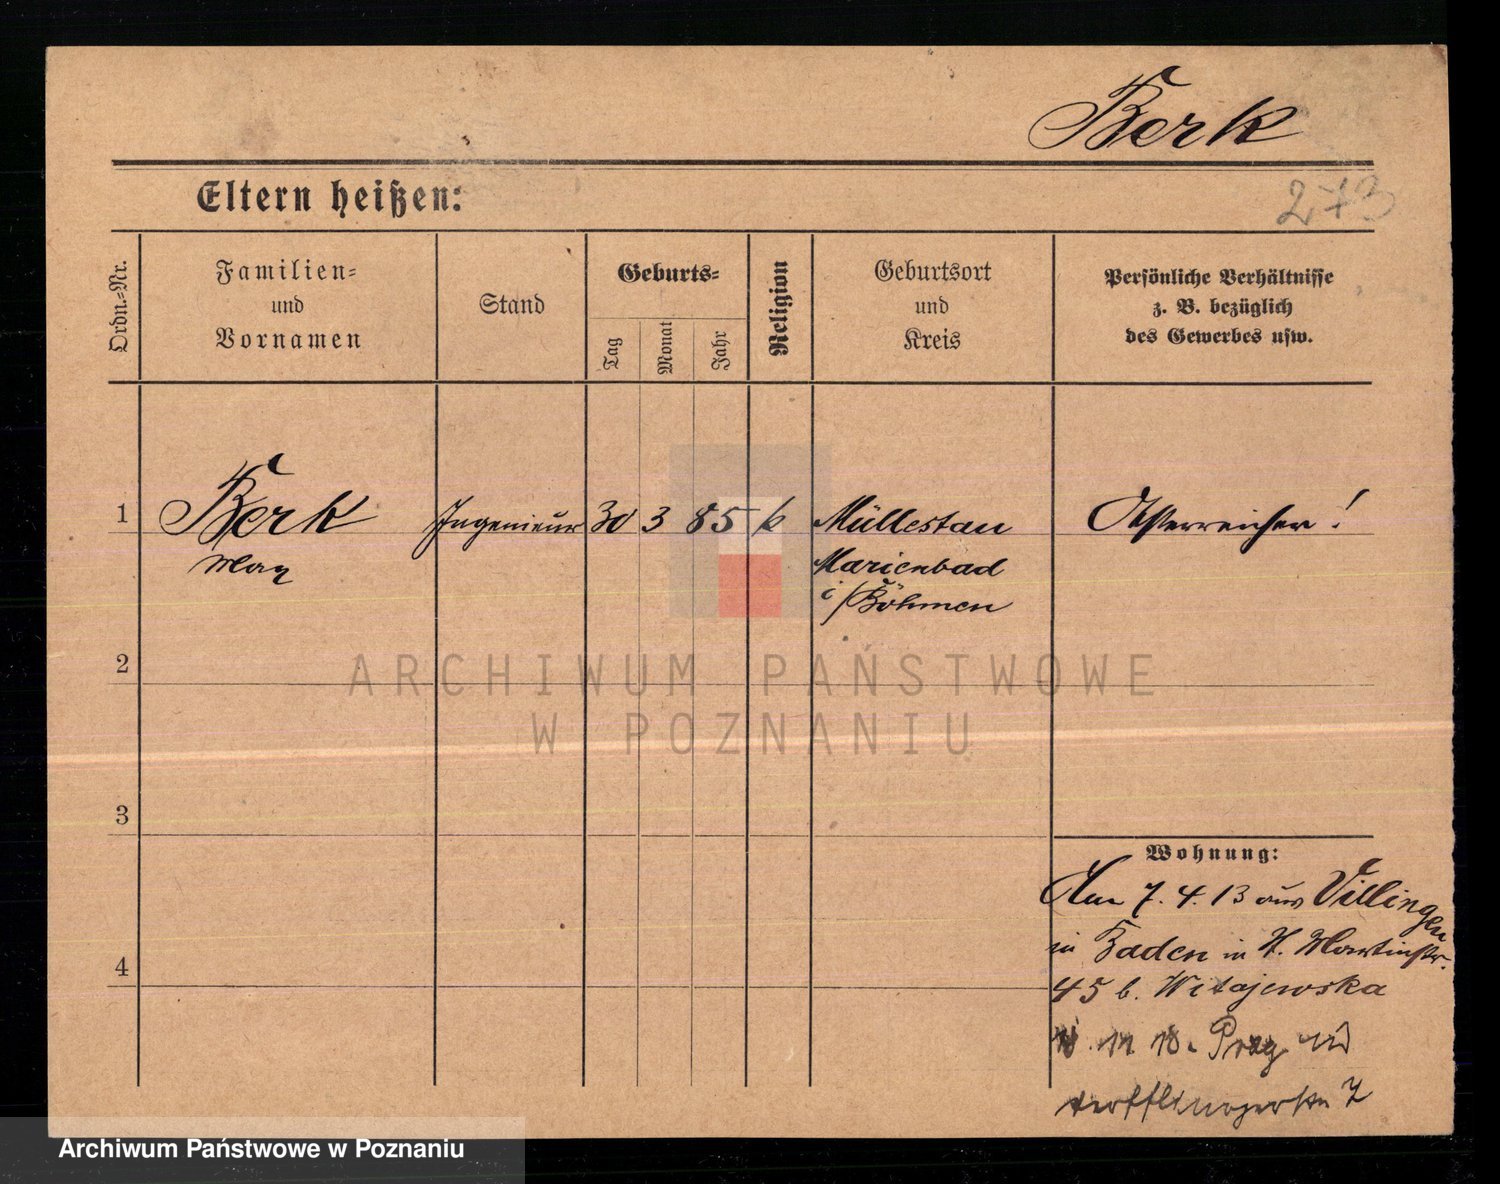 Berk
Eltern heißen:
273
Ordn.-Nr.
Familien-
und
Vornamen
Stand
Geburts-
Tag
Monat
Jahr
Religion
Geburtsort
und
Kreis
Persönliche Verhältnisse
z. B. bezüglich
des Gewerbes usw.
1
Berk
Max
Ingenieur
30
3
85
k
Müllestau
Marienbad
i/Böhmen
Österreicher!
2
ARCHIWUM PAŃSTWOWE
W POZNANIU
3
Wohnung:
Am 7. 4. 13 aus Villingen
in Baden in St. Martinstr.
45 b. Witajewska
11 18. Prag
4
Archiwum Państwowe w Poznaniu